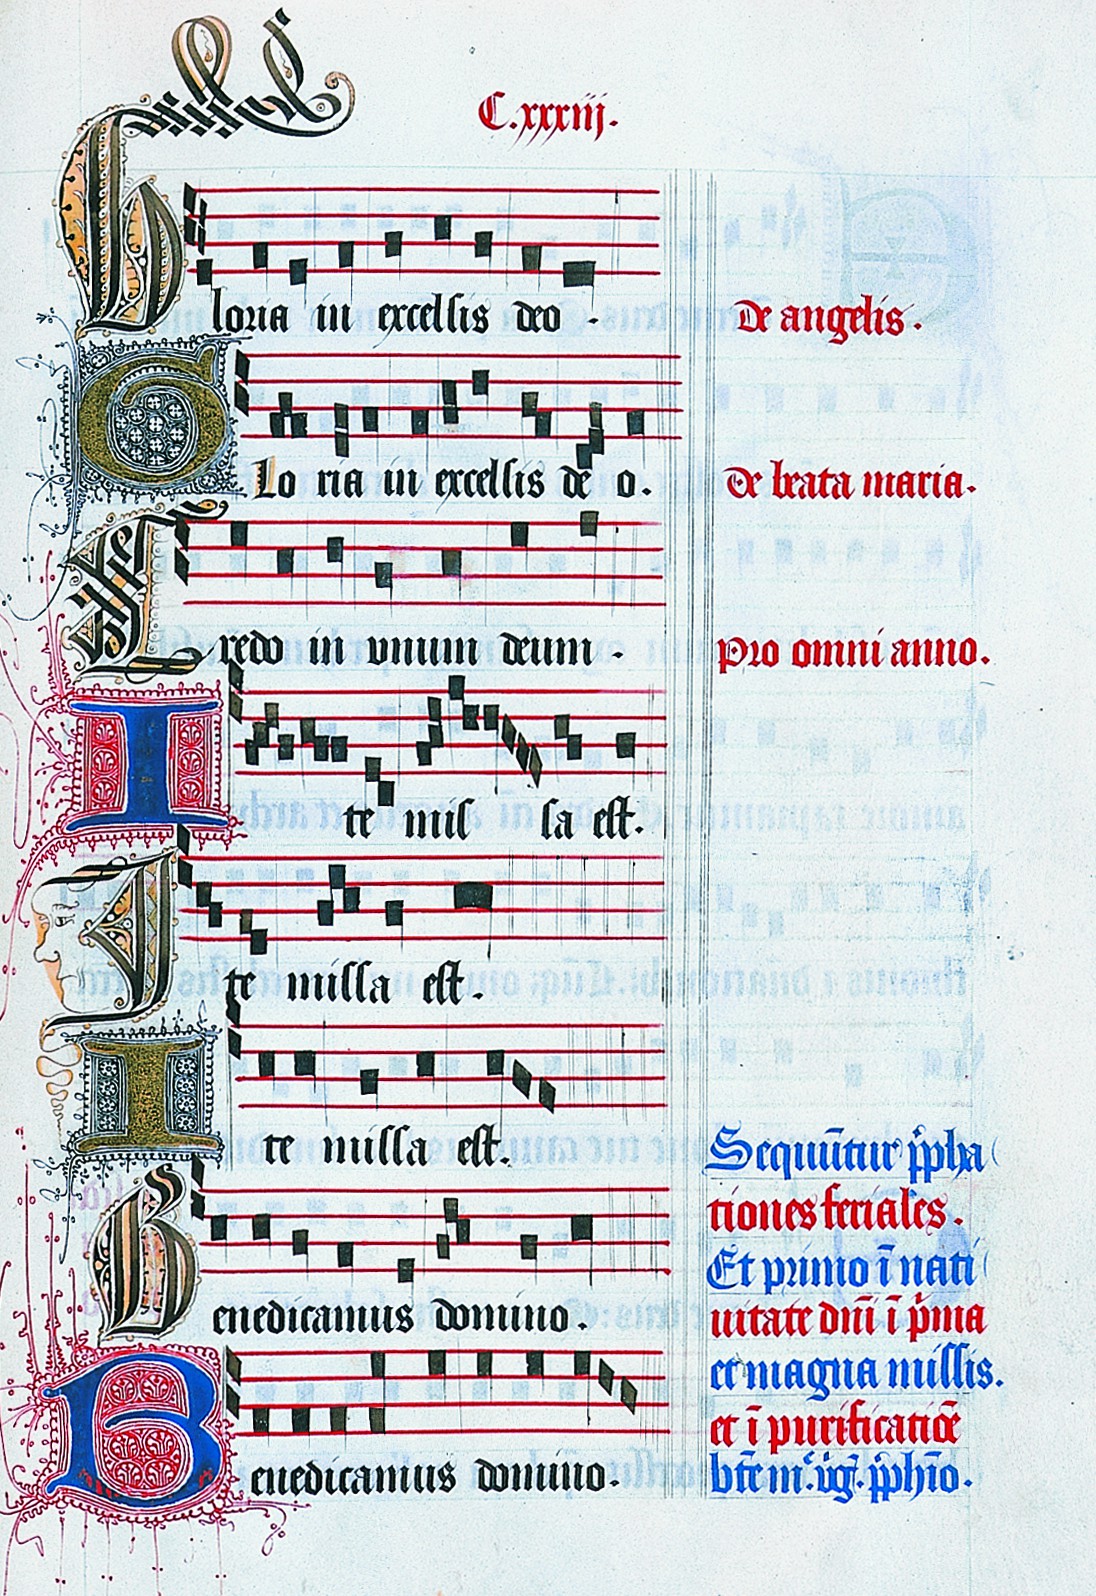 C.xxxiij.
Gloria in excelsis deo .
De angelis .
Glo ria in excelsis de o .
De beata maria .
Credo in vnum deum .
Pro omni anno .
I te mis sa est .
Ite missa est .
Ite missa est .
Benedicamus domino .
Benedicamus domino .
Sequūtur p̄pha
tiones feriales .
Et primo ī nati
uitate dn̄i ī p̄ma
et magna missis .
et ī purificatiōe